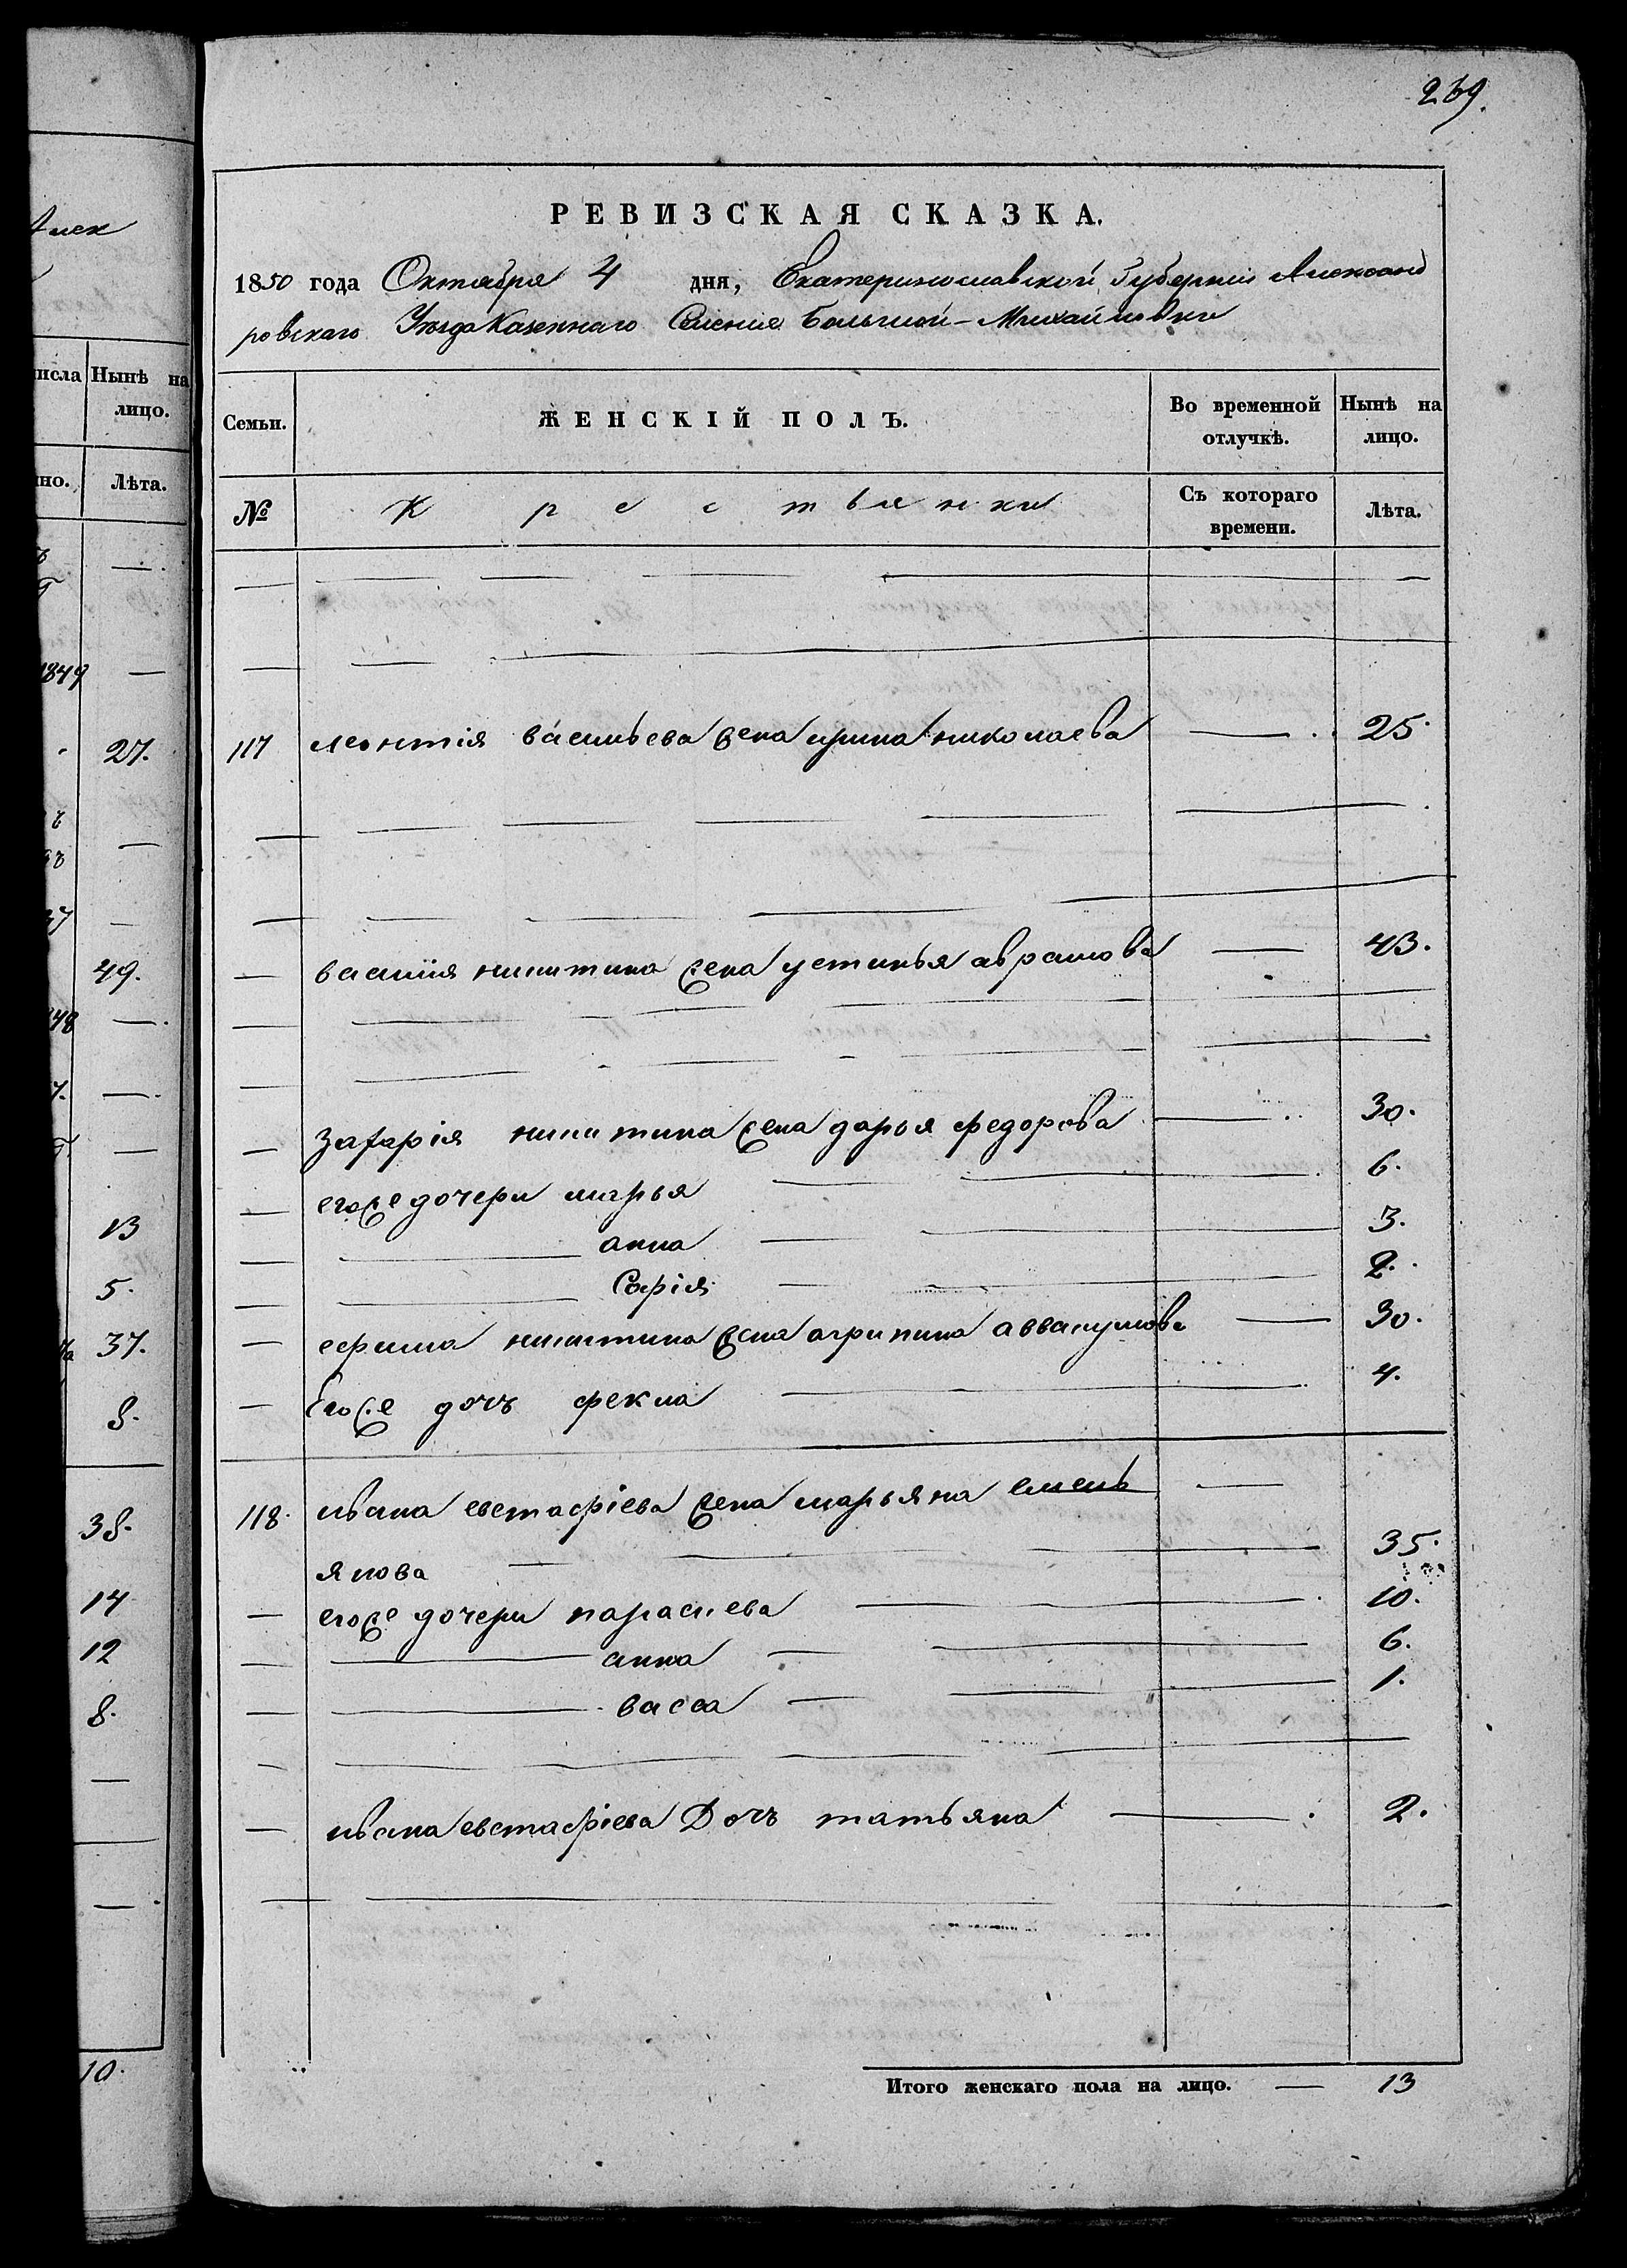 239.
РЕВИЗСКАЯ СКАЗКА.
1850 года Октября 4 дня, Екатеринославской Губернии Александ
ровскаго Уезда Казеннаго Селения Большой-Михайловки
Семьи. ЖЕНСКІЙ ПОЛЪ. Во временной отлучкѣ. Нынѣ на лицо.
№ Крестьянки Съ котораго времени. Лѣта.
117 леонтія васильева жена ирина николаева — 25.
— василия никитина жена устинья аврамова — 43.
— захарія никитина жена дарья федорова — 30.
— егоже дочери марья — 6.
— анна — 3.
— Софія — 2.
— ефима никитина жена агрипина аввакумова — 30.
— Егоже дочь фекла — 4.
118. ивана евстафіева жена марьяна емель
янова — 35.
— егоже дочери параскева — 10.
— анна — 6.
— васса — 1.
— ивана евстафіева Дочь татьяна — 2.
Итого женскаго пола на лицо. — 13
Алек
числа Нынѣ на
лицо.
но. Лѣта.
1849 —
27.
37 —
49.
48 —
13
5.
37.
8.
38.
14
12
8.
10.